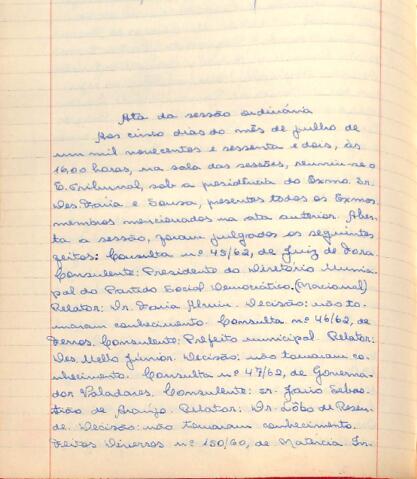 Ata da sessão ordinária
Aos cinco dias do mês de julho de
um mil novecentos e sessenta e dois, às
16,00 horas, na sala das sessões, reuniu-se o
E. Tribunal, sob a presidência do Exmo. Sr.
Des. Faria e Sousa, presentes todos os Exmos.
membros mencionados na ata anterior. Aber-
ta a sessão, foram julgados os seguintes
feitos: Consulta nº 45/62, de Juiz de Fora.
Consulente: Presidente do Diretório Munici-
pal do Partido Social Democrático. (Nacional)
Relator: Dr. Faria Alvim. Decisão: não to-
maram conhecimento. Consulta nº 46/62, de
Consulente: Prefeito municipal. Relator:
Des. Mello Júnior. Decisão: não tomaram co-
nhecimento. Consulta nº 47/62, de Governa-
dor Valadares. Consulente: Sr. Jairo Sebas-
tião de Araújo. Relator: Dr. Lôbo de Resen-
de. Decisão: não tomaram conhecimento.
Feitos Diversos nº 150/60, de Natércia.